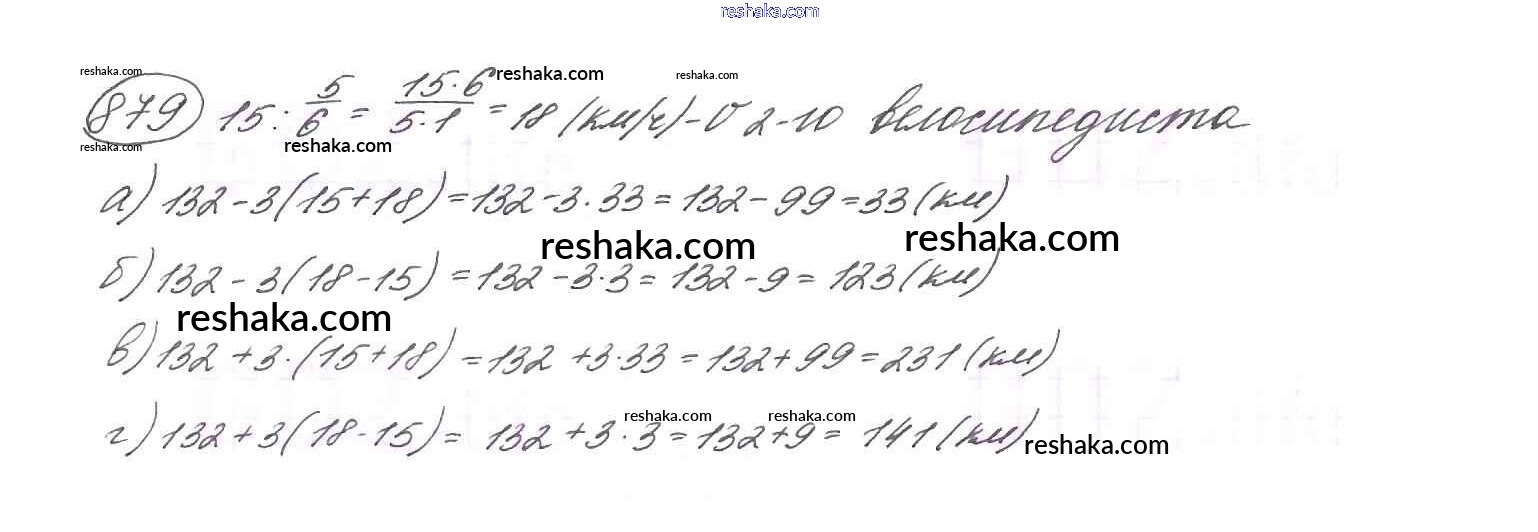 reshaka.com
reshaka.com
879 15 : 5/6 = 15·6/5·1 = 18 (км/ч) - V 2-го велосипедиста
reshaka.com reshaka.com
reshaka.com reshaka.com
а) 132 - 3(15+18) = 132 - 3·33 = 132 - 99 = 33 (км)
reshaka.com reshaka.com
б) 132 - 3(18-15) = 132 - 3·3 = 132 - 9 = 123 (км)
reshaka.com
в) 132 + 3·(15+18) = 132 + 3·33 = 132 + 99 = 231 (км)
reshaka.com reshaka.com
г) 132 + 3(18-15) = 132 + 3·3 = 132 + 9 = 141 (км)
reshaka.com